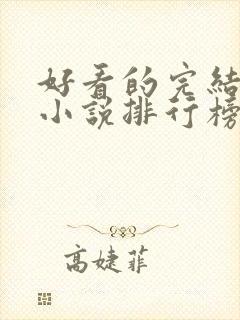 好看的完結
小說排行榜
高婕菲